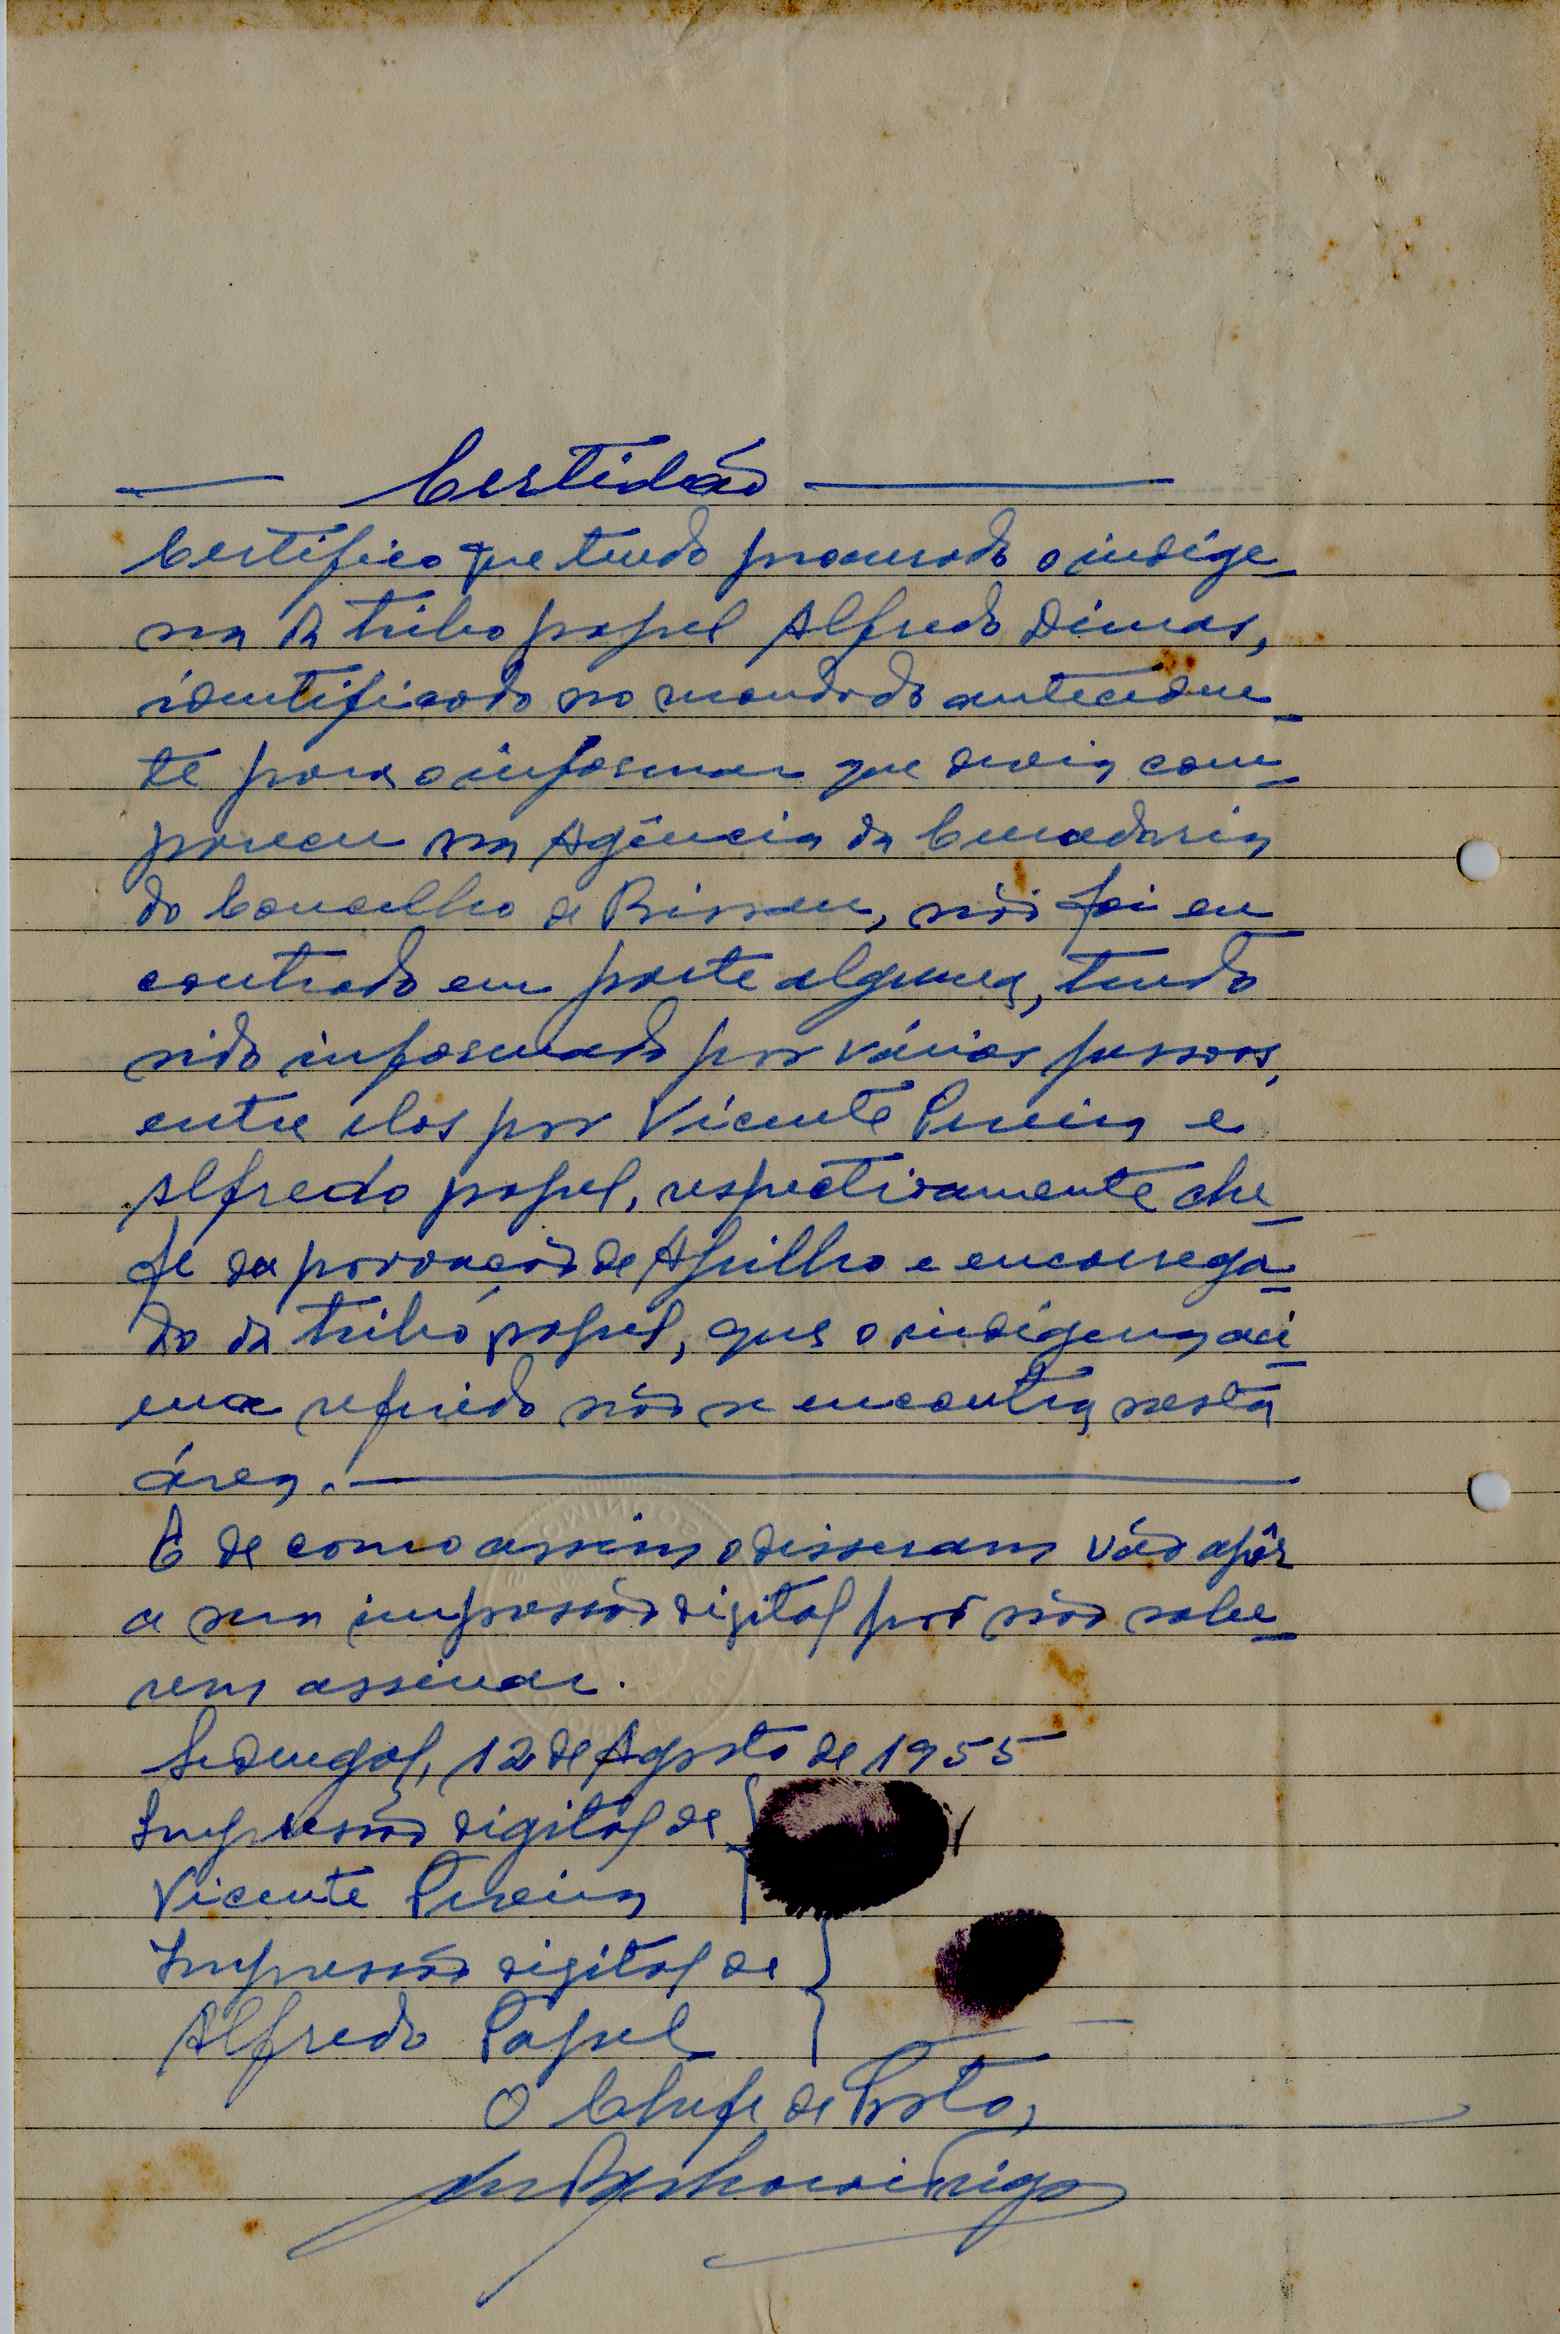 Certidão
Certifico que tendo procurado o indíge-
na da tribo papel Alfredo Dimas,
identificado no mandado anteceden-
te para o informar que devia com-
parecer na Agência da Curadoria
do Concelho de Bissau, não foi en
contrado em parte alguma, tendo
sido informado por várias pessoas,
entre elas por Vicente Pereira e
Alfredo papel, respectivamente che-
fe da povoação de Apilho e encarrega-
do da tribo papel, que o indígena aci-
ma referido não se encontra nesta
área.
E de como assim o disseram vão apôr
a sua impressão digital por não sabe-
rem assinar.
Sedengal, 12 de Agosto de 1955
Impressão digital de
Vicente Pereira
Impressão digital de
Alfredo Papel
O Chefe de Posto,